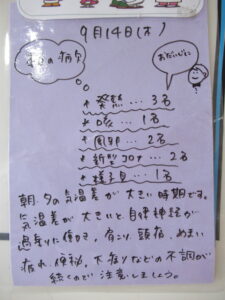 9月14日(木)
本日の病欠
おだいじに
* 発熱 … 3名
* 咳 … 1名
* 風邪 … 2名
* 新型コロナ … 2名
* 様子見 … 1名
朝・夕の気温差が大きい時期です。
気温差が大きいと、自律神経が
過剰に働き、肩こり、頭痛、めまい
疲れ、便秘、下痢などの不調が
続くので注意しましょう。